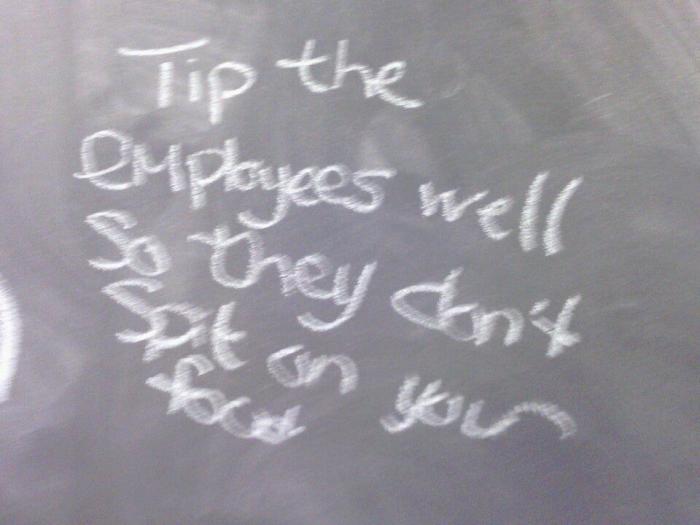 Tip the
employees well
So they don't
Spit on your
food